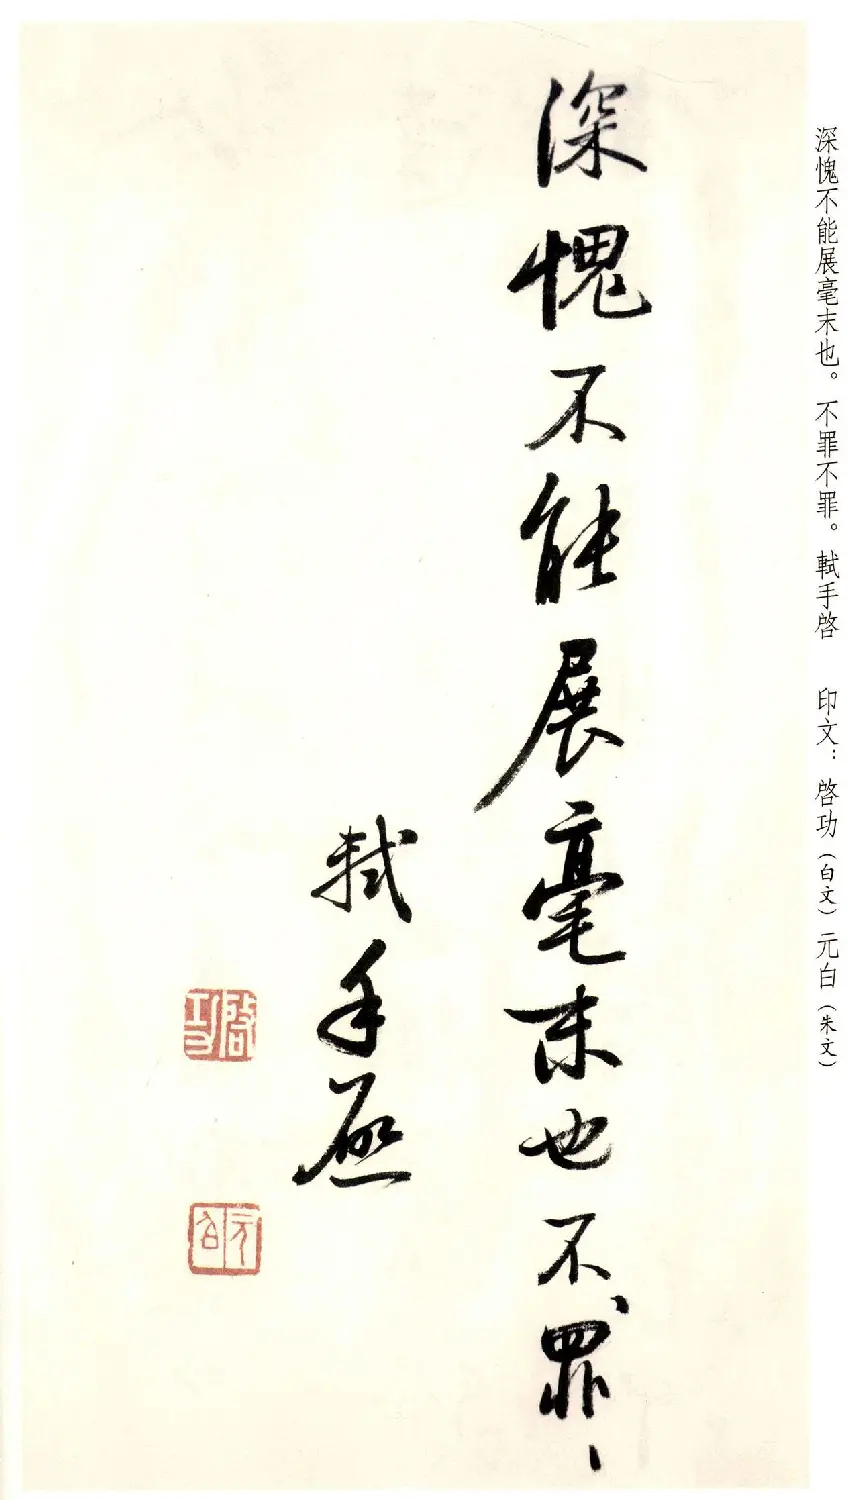 深愧不能展毫末也。不罪不罪。軾手啓　印文：啓功（白文）元白（朱文）
深愧不能展毫末也不〻罪〻
軾手啓
啓功
元白